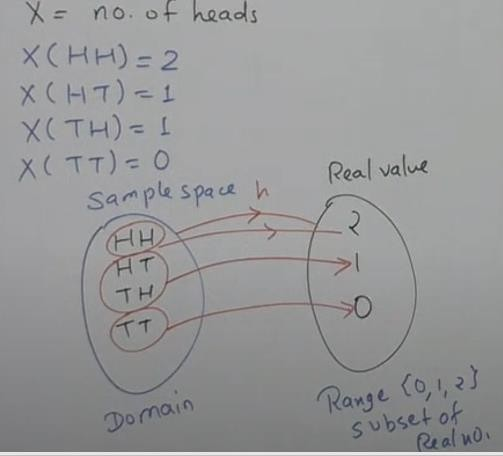 X = no. of heads
X(HH) = 2
X(HT) = 1
X(TH) = 1
X(TT) = 0
Sample space h Real value
HH 2
HT 1
TH
TT 0
Domain
Range {0,1,2}
subset of
Real no.